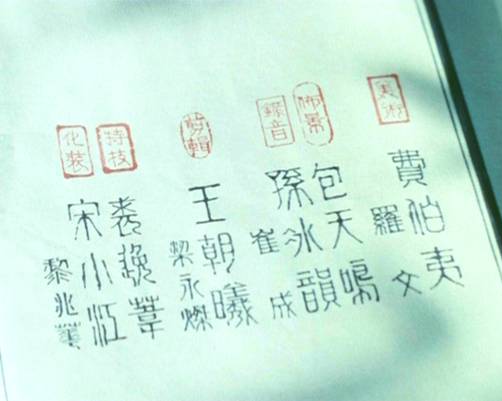 美術
費伯夷
羅文
佈景
包天鳴
錄音
孫氷韻
崔成
剪輯
王朝曦
梁永燦
特技
裘逸葦
化裝
宋小江
黎兆